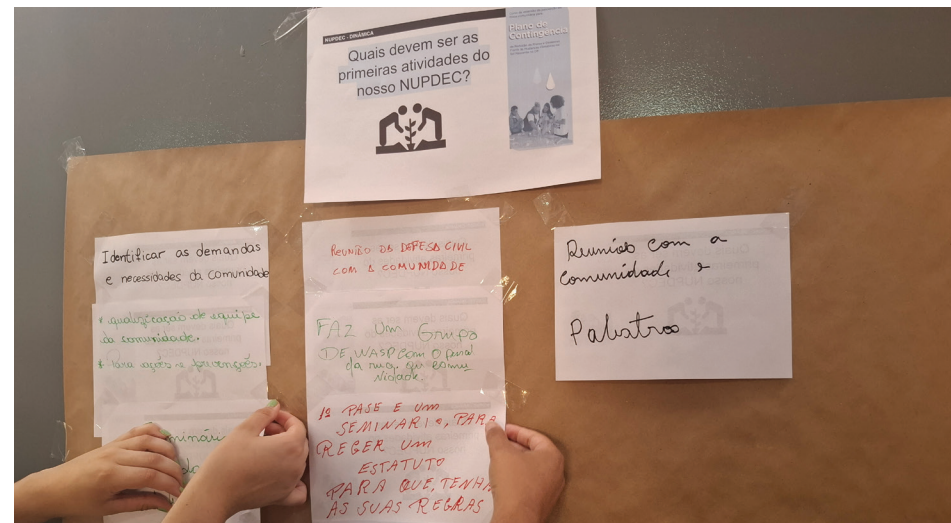 NUPDEC - DINÂMICA
Quais devem ser as
primeiras atividades do
nosso NUPDEC?
Plano de
Contingência
Identificar as demandas
e necessidades da comunidade
* qualificação de equipe
da comunidade.
* para ações e prevenções.
REUNIÃO DA DEFESA CIVIL
COM A COMUNIDADE
FAZ Um Grupo
DE WASP com o
da rua, ou comu
nidade.
1ª FASE E UM
SEMINARIO, PARA
REGER UM
ESTATUTO
PARA QUE, TENHA
AS SUAS REGRAS
Reunião com a
comunidade e
Palestras